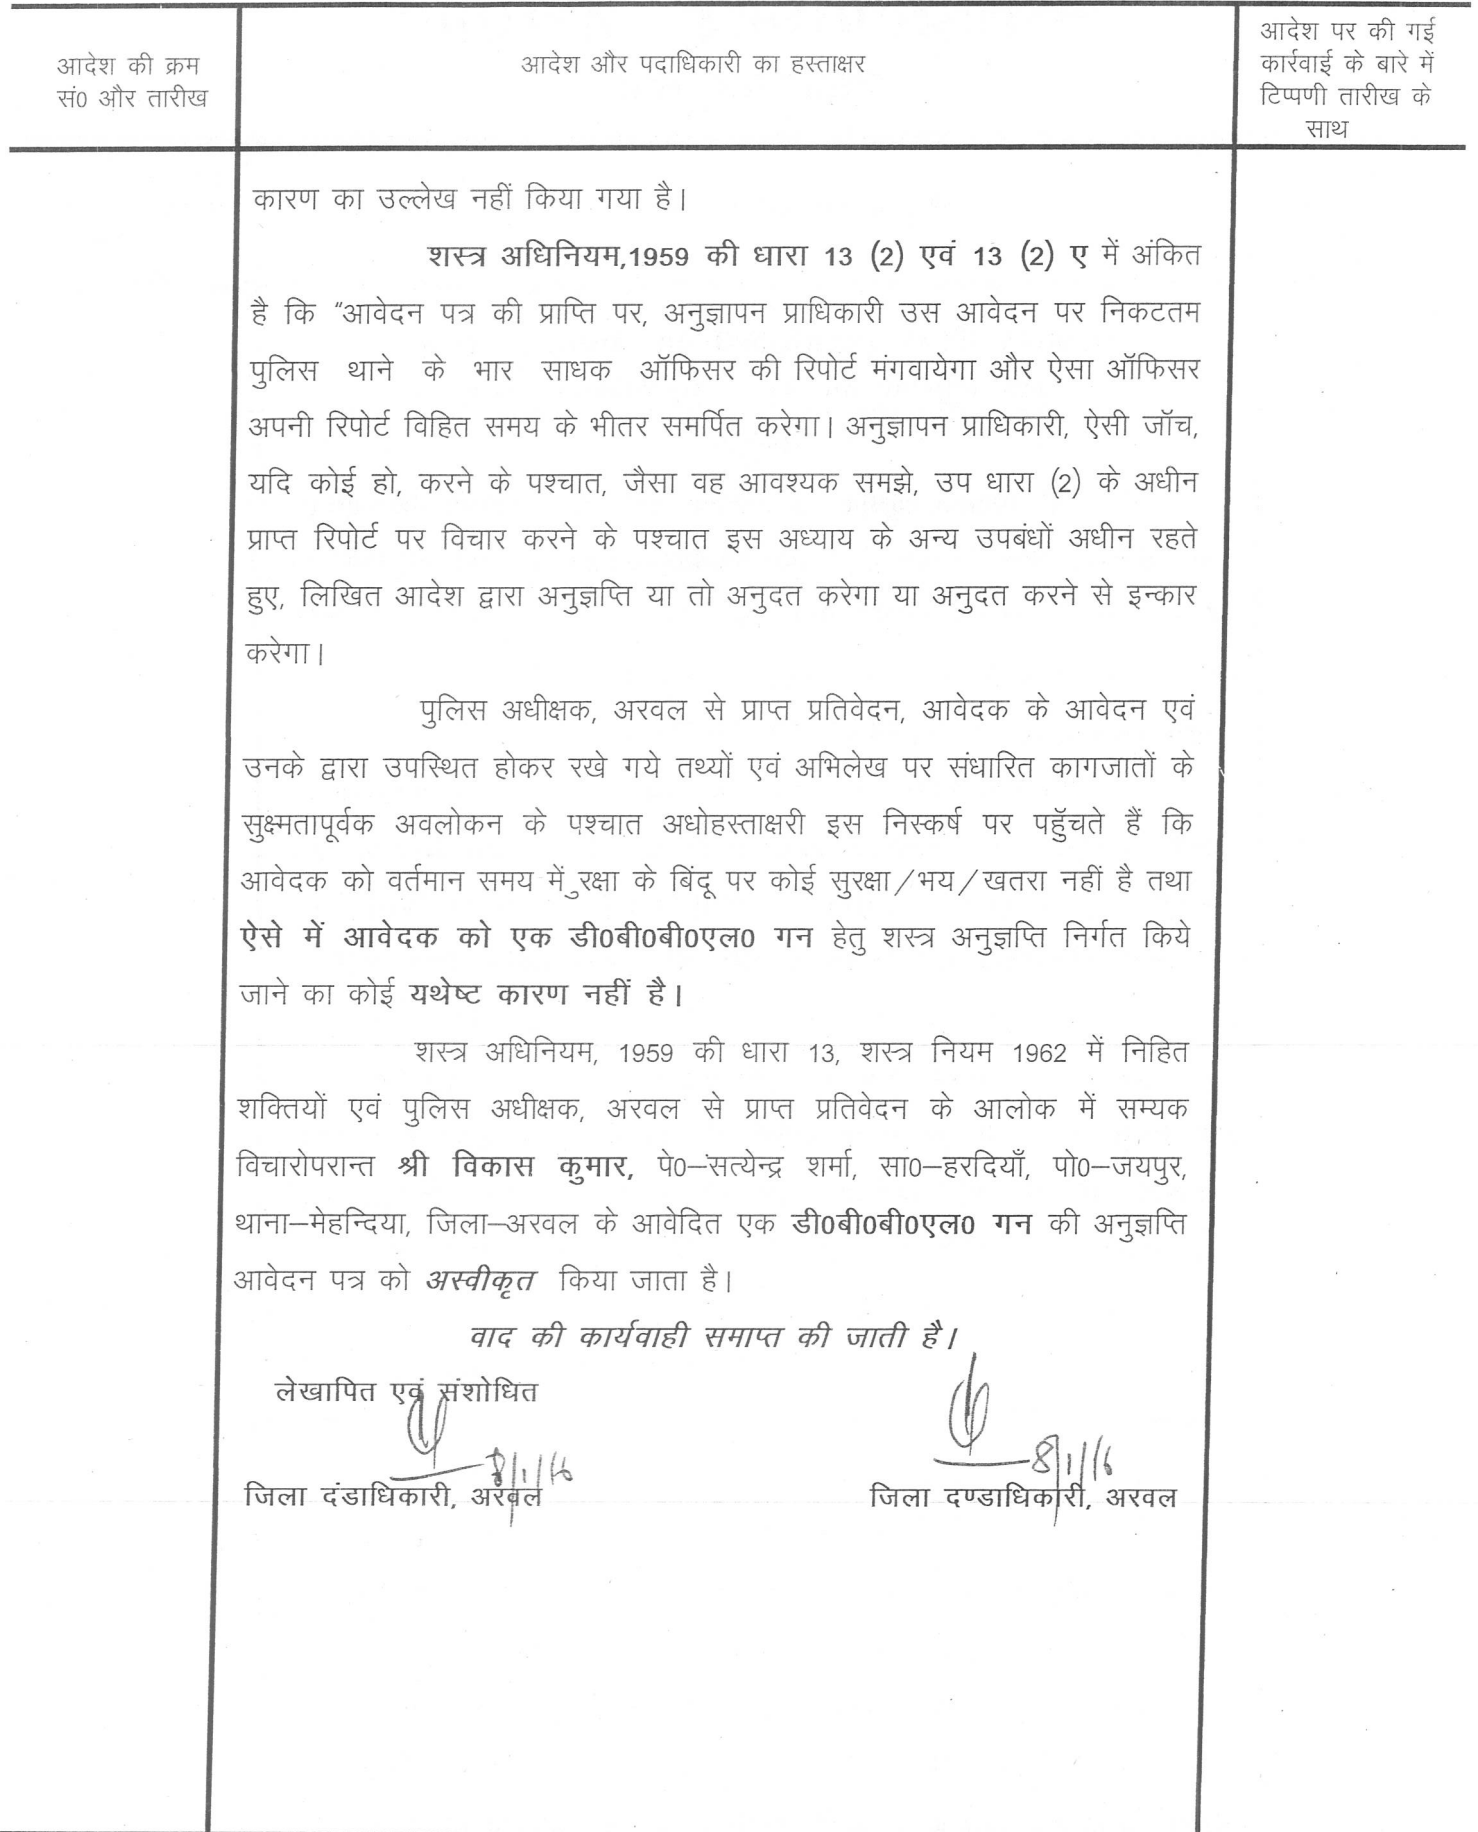 आदेश की क्रम
सं0 और तारीख
आदेश और पदाधिकारी का हस्ताक्षर
आदेश पर की गई
कार्रवाई के बारे में
टिप्पणी तारीख के
साथ
कारण का उल्लेख नहीं किया गया है।
शस्त्र अधिनियम,1959 की धारा 13 (2) एवं 13 (2) ए में अंकित
है कि "आवेदन पत्र की प्राप्ति पर, अनुज्ञापन प्राधिकारी उस आवेदन पर निकटतम
पुलिस थाने के भार साधक ऑफिसर की रिपोर्ट मंगवायेगा और ऐसा ऑफिसर
अपनी रिपोर्ट विहित समय के भीतर समर्पित करेगा। अनुज्ञापन प्राधिकारी, ऐसी जॉच,
यदि कोई हो, करने के पश्चात, जैसा वह आवश्यक समझे, उप धारा (2) के अधीन
प्राप्त रिपोर्ट पर विचार करने के पश्चात इस अध्याय के अन्य उपबंधों अधीन रहते
हुए, लिखित आदेश द्वारा अनुज्ञप्ति या तो अनुदत करेगा या अनुदत करने से इन्कार
करेगा।
पुलिस अधीक्षक, अरवल से प्राप्त प्रतिवेदन, आवेदक के आवेदन एवं
उनके द्वारा उपस्थित होकर रखे गये तथ्यों एवं अभिलेख पर संधारित कागजातों के
सुक्ष्मतापूर्वक अवलोकन के पश्चात अधोहस्ताक्षरी इस निस्कर्ष पर पहुँचते हैं कि
आवेदक को वर्तमान समय में ुरक्षा के बिंदू पर कोई सुरक्षा/भय/खतरा नहीं है तथा
ऐसे में आवेदक को एक डी0बी0बी0एल0 गन हेतु शस्त्र अनुज्ञप्ति निर्गत किये
जाने का कोई यथेष्ट कारण नहीं है।
शस्त्र अधिनियम, 1959 की धारा 13, शस्त्र नियम 1962 में निहित
शक्तियों एवं पुलिस अधीक्षक, अरवल से प्राप्त प्रतिवेदन के आलोक में सम्यक
विचारोपरान्त श्री विकास कुमार, पे0–सत्येन्द्र शर्मा, सा0–हरदियाँ, पो0–जयपुर,
थाना–मेहन्दिया, जिला–अरवल के आवेदित एक डी0बी0बी0एल0 गन की अनुज्ञप्ति
आवेदन पत्र को अस्वीकृत किया जाता है।
वाद की कार्यवाही समाप्त की जाती है।
लेखापित एवं संशोधित
8/1/16
8/1/16
जिला दंडाधिकारी, अरवल
जिला दण्डाधिकारी, अरवल